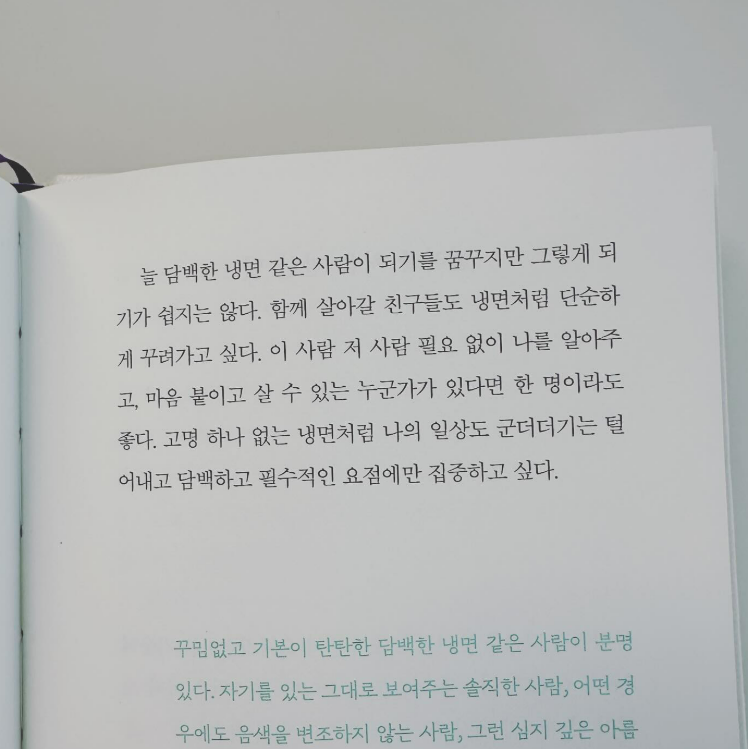 늘 담백한 냉면 같은 사람이 되기를 꿈꾸지만 그렇게 되
기가 쉽지는 않다. 함께 살아갈 친구들도 냉면처럼 단순하
게 꾸려가고 싶다. 이 사람 저 사람 필요 없이 나를 알아주
고, 마음 붙이고 살 수 있는 누군가가 있다면 한 명이라도
좋다. 고명 하나 없는 냉면처럼 나의 일상도 군더더기는 털
어내고 담백하고 필수적인 요점에만 집중하고 싶다.
꾸밈없고 기본이 탄탄한 담백한 냉면 같은 사람이 분명
있다. 자기를 있는 그대로 보여주는 솔직한 사람, 어떤 경
우에도 음색을 변조하지 않는 사람, 그런 심지 깊은 아름